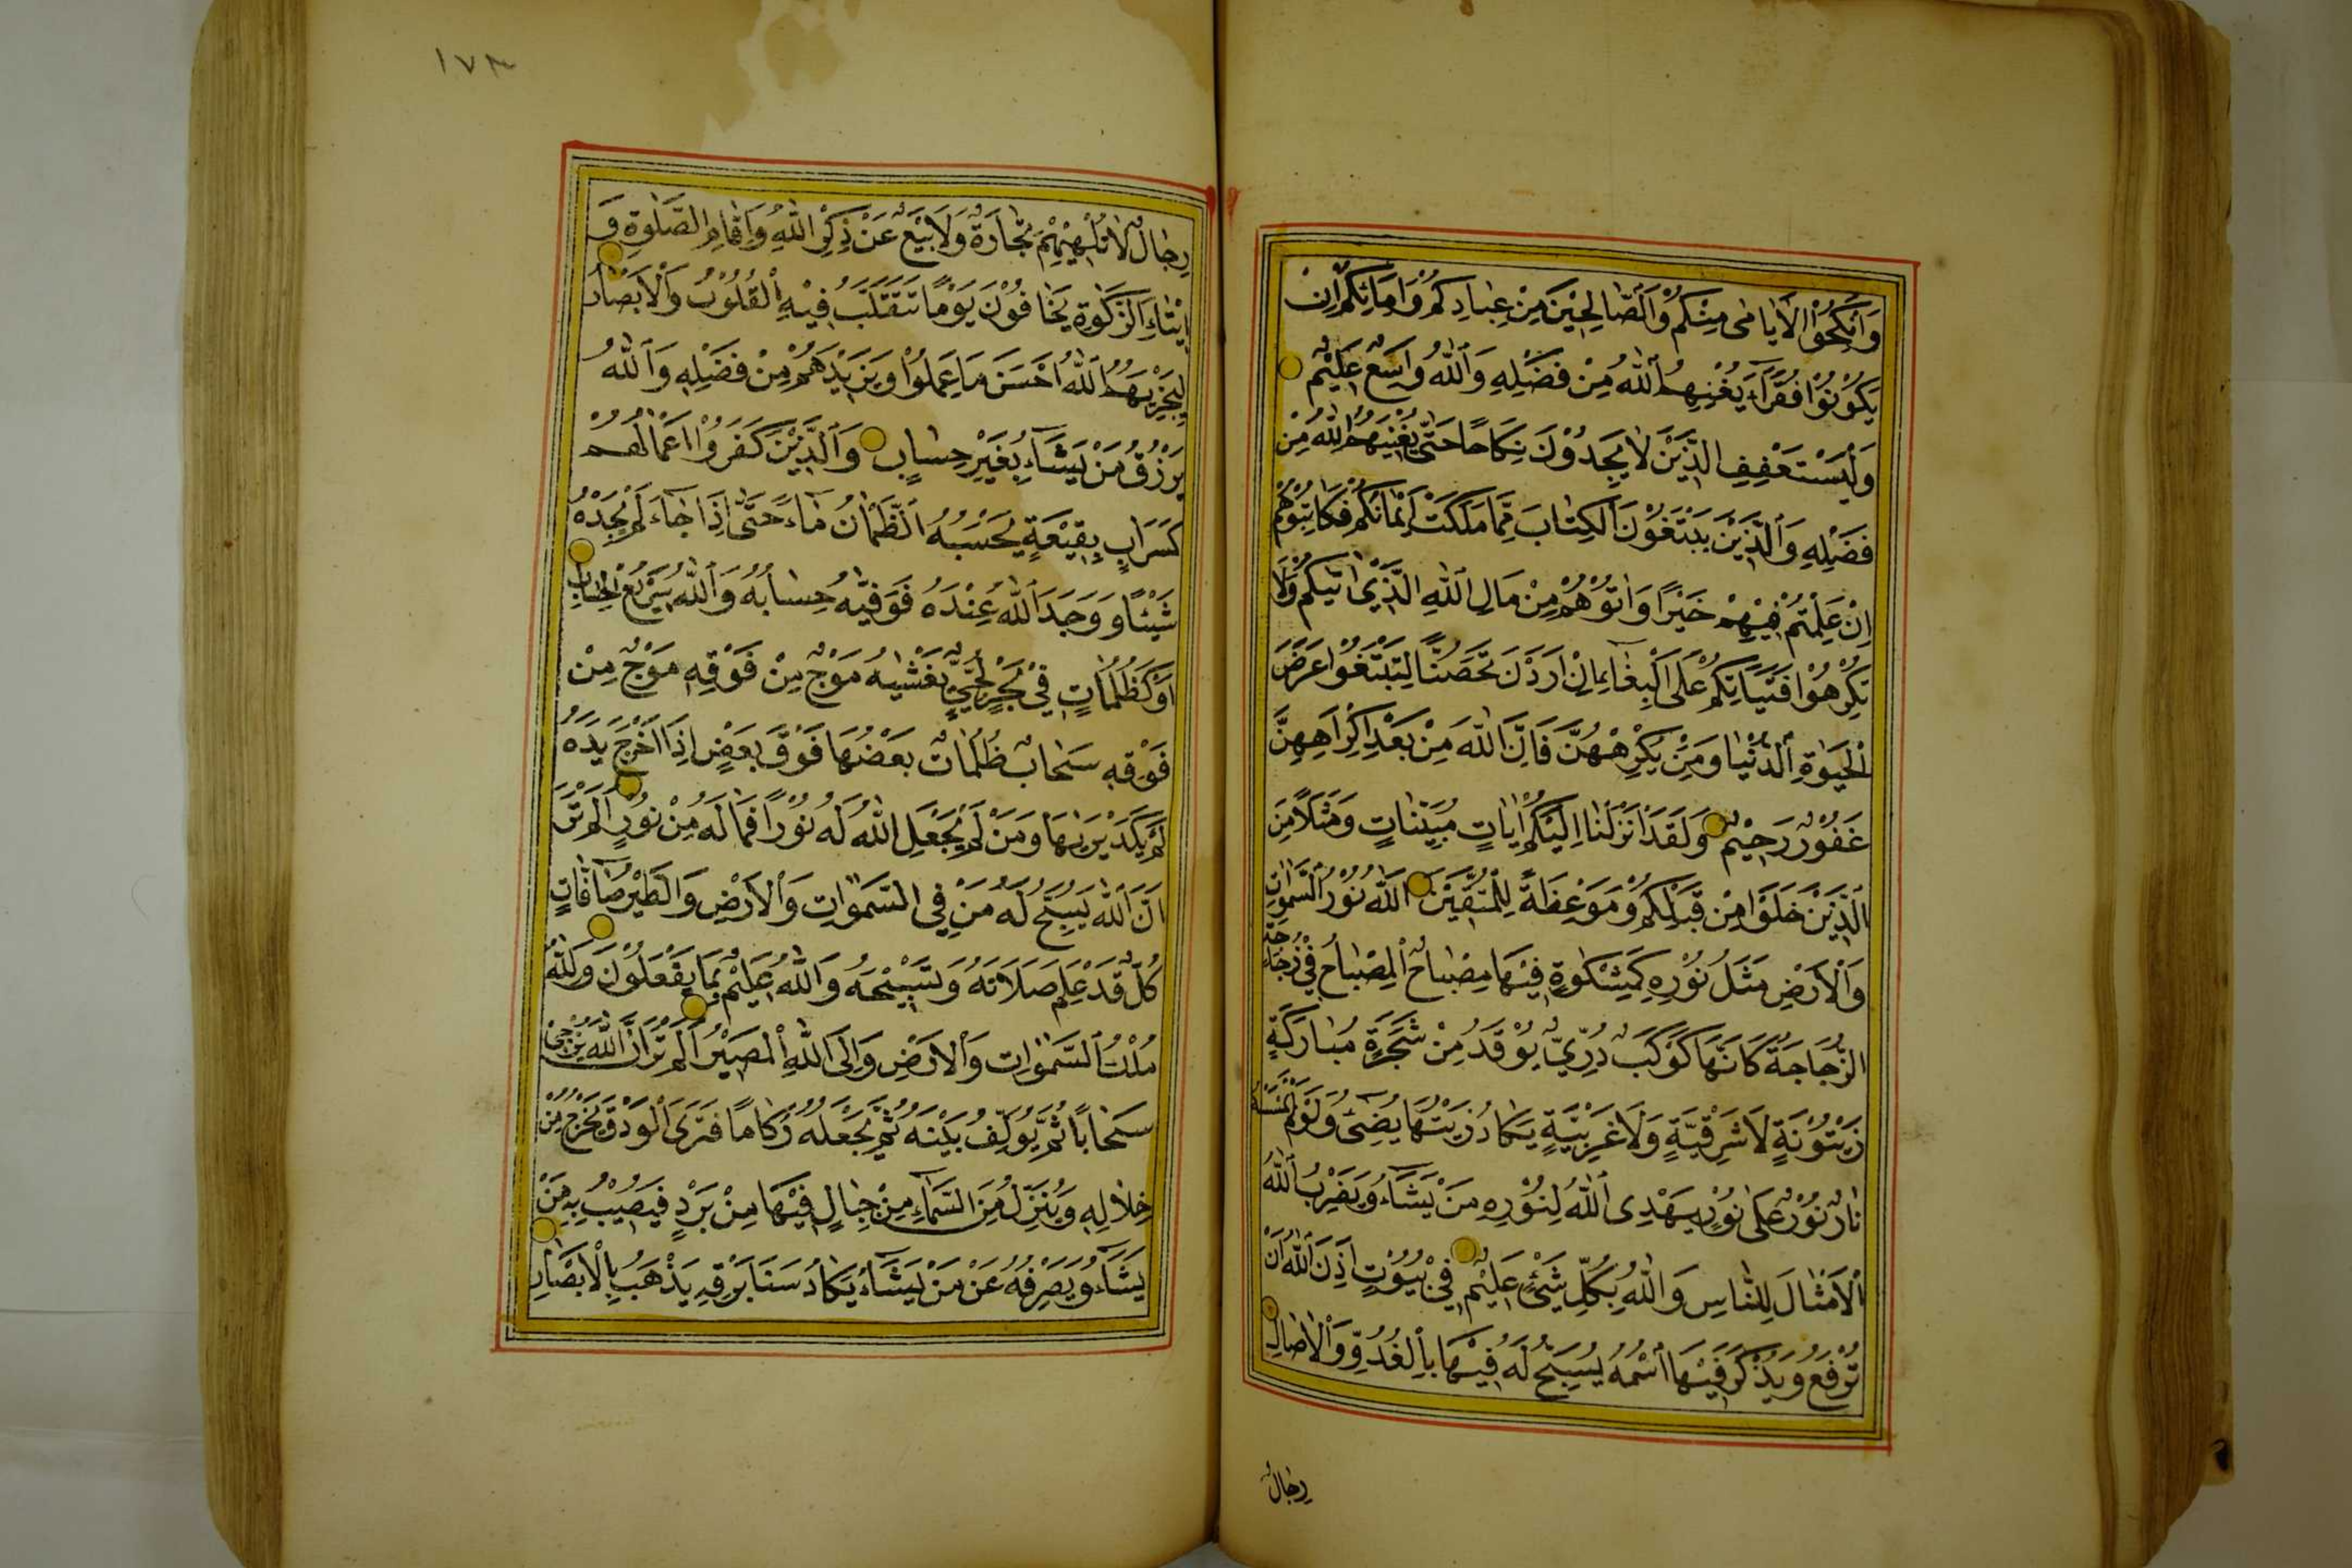 وَاَنْكِحُوْا الْاَيَامٰى مِنْكُمْ وَالصَّالِحِيْنَ مِنْ عِبَادِكُمْ وَاِمَائِكُمْ اِنْ
يَكُوْنُوْا فُقَرَآءَ يُغْنِهِمُ اللّٰهُ مِنْ فَضْلِهِ وَاللّٰهُ وَاسِعٌ عَلِيْمٌ
وَلْيَسْتَعْفِفِ الَّذِيْنَ لَا يَجِدُوْنَ نِكَاحًا حَتّٰى يُغْنِيَهُمُ اللّٰهُ مِنْ
فَضْلِهِ وَالَّذِيْنَ يَبْتَغُوْنَ الْكِتَابَ مِمَّا مَلَكَتْ اَيْمَانُكُمْ فَكَاتِبُوْهُمْ
اِنْ عَلِمْتُمْ فِيْهِمْ خَيْرًا وَاٰتُوْهُمْ مِنْ مَالِ اللّٰهِ الَّذِيْ اٰتٰيكُمْ وَلَا
تُكْرِهُوْا فَتَيَاتِكُمْ عَلَى الْبِغَآءِ اِنْ اَرَدْنَ تَحَصُّنًا لِتَبْتَغُوْا عَرَضَ
الْحَيٰوةِ الدُّنْيَا وَمَنْ يُكْرِهْهُنَّ فَاِنَّ اللّٰهَ مِنْ بَعْدِ اِكْرَاهِهِنَّ
غَفُوْرٌ رَحِيْمٌ وَلَقَدْ اَنْزَلْنَا اِلَيْكُمْ اٰيَاتٍ مُبَيِّنَاتٍ وَمَثَلًا مِنَ
الَّذِيْنَ خَلَوْا مِنْ قَبْلِكُمْ وَمَوْعِظَةً لِلْمُتَّقِيْنَ اَللّٰهُ نُوْرُ السَّمٰوَاتِ
وَالْاَرْضِ مَثَلُ نُوْرِهِ كَمِشْكٰوةٍ فِيْهَا مِصْبَاحٌ اَلْمِصْبَاحُ فِيْ زُجَاجَةٍ
الزُّجَاجَةُ كَاَنَّهَا كَوْكَبٌ دُرِّيٌّ يُوْقَدُ مِنْ شَجَرَةٍ مُبَارَكَةٍ
زَيْتُوْنَةٍ لَا شَرْقِيَّةٍ وَلَا غَرْبِيَّةٍ يَكَادُ زَيْتُهَا يُضِيْٓءُ وَلَوْ لَمْ تَمْسَسْهُ
نَارٌ نُوْرٌ عَلٰى نُوْرٍ يَهْدِى اللّٰهُ لِنُوْرِهِ مَنْ يَشَآءُ وَيَضْرِبُ اللّٰهُ
الْاَمْثَالَ لِلنَّاسِ وَاللّٰهُ بِكُلِّ شَيْءٍ عَلِيْمٌ فِيْ بُيُوْتٍ اَذِنَ اللّٰهُ اَنْ
تُرْفَعَ وَيُذْكَرَ فِيْهَا اسْمُهُ يُسَبِّحُ لَهُ فِيْهَا بِالْغُدُوِّ وَالْاٰصَالِ
رِجَالٌ
١٧٣
رِجَالٌ لَا تُلْهِيْهِمْ تِجَارَةٌ وَلَا بَيْعٌ عَنْ ذِكْرِ اللّٰهِ وَاِقَامِ الصَّلٰوةِ وَ
اِيْتَآءِ الزَّكٰوةِ يَخَافُوْنَ يَوْمًا تَتَقَلَّبُ فِيْهِ الْقُلُوْبُ وَالْاَبْصَارُ
لِيَجْزِيَهُمُ اللّٰهُ اَحْسَنَ مَا عَمِلُوْا وَيَزِيْدَهُمْ مِنْ فَضْلِهِ وَاللّٰهُ
يَرْزُقُ مَنْ يَشَآءُ بِغَيْرِ حِسَابٍ وَالَّذِيْنَ كَفَرُوْا اَعْمَالُهُمْ
كَسَرَابٍ بِقِيْعَةٍ يَحْسَبُهُ الظَّمْاٰنُ مَآءً حَتّٰى اِذَا جَآءَهُ لَمْ يَجِدْهُ
شَيْئًا وَوَجَدَ اللّٰهَ عِنْدَهُ فَوَفّٰيهُ حِسَابَهُ وَاللّٰهُ سَرِيْعُ الْحِسَابِ
اَوْ كَظُلُمَاتٍ فِيْ بَحْرٍ لُجِّيٍّ يَغْشٰيهُ مَوْجٌ مِنْ فَوْقِهِ مَوْجٌ مِنْ
فَوْقِهِ سَحَابٌ ظُلُمَاتٌ بَعْضُهَا فَوْقَ بَعْضٍ اِذَا اَخْرَجَ يَدَهُ
لَمْ يَكَدْ يَرٰيهَا وَمَنْ لَمْ يَجْعَلِ اللّٰهُ لَهُ نُوْرًا فَمَا لَهُ مِنْ نُوْرٍ اَلَمْ تَرَ
اَنَّ اللّٰهَ يُسَبِّحُ لَهُ مَنْ فِى السَّمٰوَاتِ وَالْاَرْضِ وَالطَّيْرُ صَآفَّاتٍ
كُلٌّ قَدْ عَلِمَ صَلَاتَهُ وَتَسْبِيْحَهُ وَاللّٰهُ عَلِيْمٌ بِمَا يَفْعَلُوْنَ وَلِلّٰهِ
مُلْكُ السَّمٰوَاتِ وَالْاَرْضِ وَاِلَى اللّٰهِ الْمَصِيْرُ اَلَمْ تَرَ اَنَّ اللّٰهَ يُزْجِى
سَحَابًا ثُمَّ يُؤَلِّفُ بَيْنَهُ ثُمَّ يَجْعَلُهُ رُكَامًا فَتَرَى الْوَدْقَ يَخْرُجُ مِنْ
خِلَالِهِ وَيُنَزِّلُ مِنَ السَّمَآءِ مِنْ جِبَالٍ فِيْهَا مِنْ بَرَدٍ فَيُصِيْبُ بِهِ مَنْ
يَشَآءُ وَيَصْرِفُهُ عَنْ مَنْ يَشَآءُ يَكَادُ سَنَا بَرْقِهِ يَذْهَبُ بِالْاَبْصَارِ